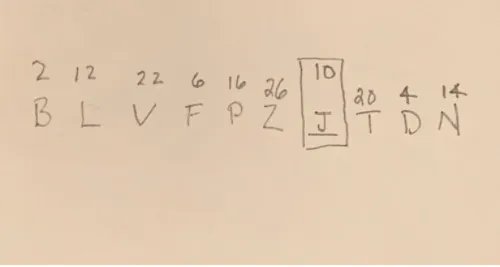 2 12 22 6 16 26 10 20 4 14
B L V F P Z J T D N